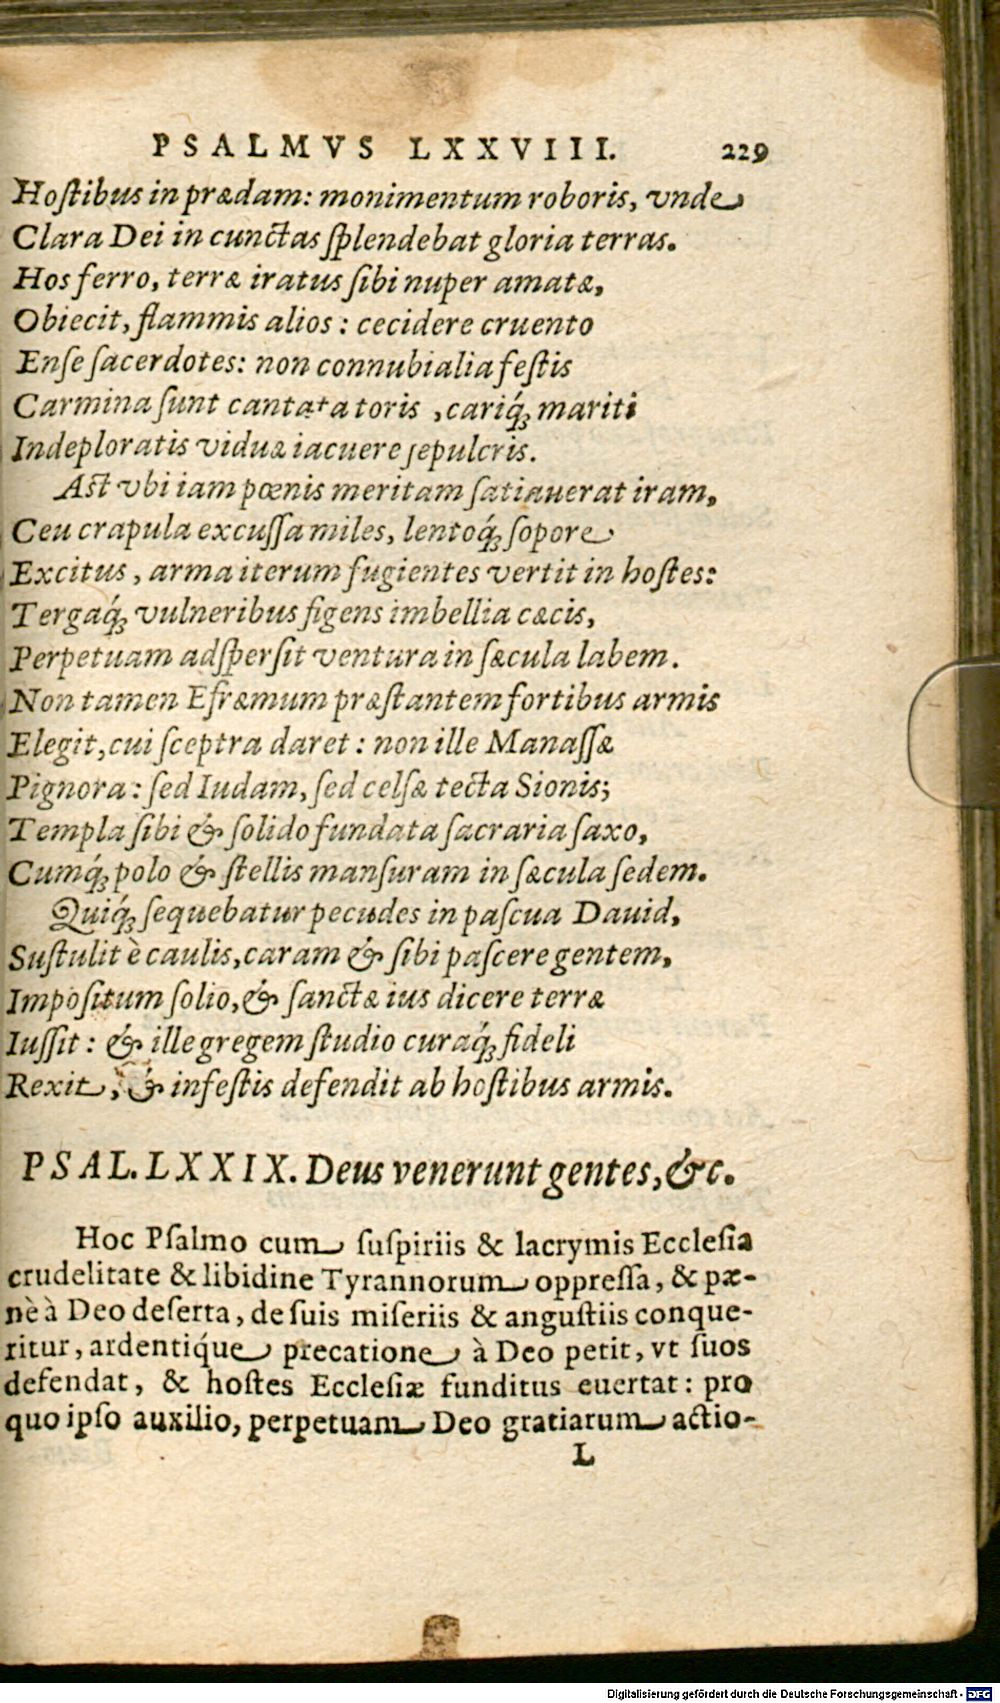 PSALMVS LXXVIII. 229
Hoſtibus in prædam: monimentum roboris, vnde
Clara Dei in cunctas ſplendebat gloria terras.
Hos ferro, terræ iratus ſibi nuper amatæ,
Obiecit, flammis alios: cecidere cruento
Enſe ſacerdotes: non connubialia feſtis
Carmina ſunt cantata toris, cariq́ꝫ mariti
Indeploratis viduæ iacuere ſepulcris.
Aſt vbi iam pœnis meritam ſatiauerat iram,
Ceu crapula excuſſa miles, lentoq́ꝫ ſopore
Excitus, arma iterum fugientes vertit in hoſtes:
Tergaq́ꝫ vulneribus figens imbellia cæcis,
Perpetuam adſperſit ventura in ſæcula labem.
Non tamen Efræmum præſtantem fortibus armis
Elegit, cui ſceptra daret: non ille Manaſſæ
Pignora: ſed Iudam, ſed celſæ tecta Sionis;
Templa ſibi & ſolido fundata ſacraria ſaxo,
Cumq́ꝫ polo & ſtellis manſuram in ſæcula ſedem.
Quiq́ꝫ ſequebatur pecudes in paſcua Dauid,
Suſtulit è caulis, caram & ſibi paſcere gentem,
Impoſitum ſolio, & ſanctæ ius dicere terræ
Iuſſit: & ille gregem ſtudio curaq́ꝫ fideli
Rexit, & infeſtis defendit ab hoſtibus armis.
PSAL. LXXIX. Deus venerunt gentes, &c.
Hoc Pſalmo cum ſuſpiriis & lacrymis Eccleſia
crudelitate & libidine Tyrannorum oppreſſa, & pæ-
nè à Deo deſerta, de ſuis miſeriis & anguſtiis conque-
ritur, ardentiq́ue precatione à Deo petit, vt ſuos
defendat, & hoſtes Eccleſiæ funditus euertat: pro
quo ipſo auxilio, perpetuam Deo gratiarum actio-
L
Digitalisierung gefördert durch die Deutsche Forschungsgemeinschaft - DFG